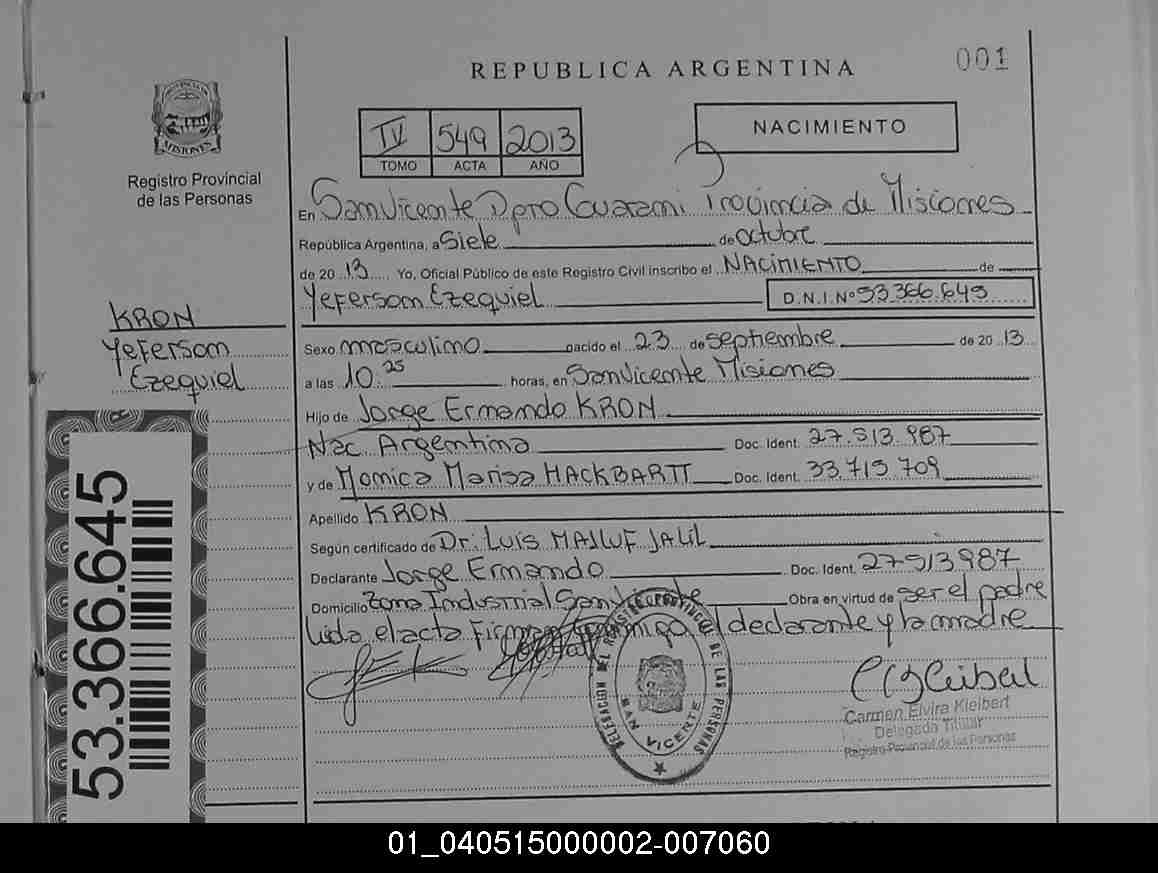 REPUBLICA ARGENTINA
001
PROVINCIA DE
MISIONES
Registro Provincial
de las Personas
IV 549 2013
TOMO ACTA AÑO
NACIMIENTO
En San Vicente Dpto Guarani Provincia de Misiones
República Argentina, a Siete de Octubre
de 20 13 Yo, Oficial Público de este Registro Civil inscribo el NACIMIENTO de
Yeferson Ezequiel D.N.I.Nº 53.366.645
KRON
Yeferson
Ezequiel
Sexo masculino nacido el 23 de septiembre de 20 13
a las 10.25 horas, en San Vicente Misiones
Hijo de Jorge Ernando KRON
Nac Argentina Doc. Ident. 27.513.987
y de Monica Marisa HACKBARTT Doc. Ident. 33.713.709
Apellido KRON
Según certificado de Dr. Luis MAJLUF JALIL
Declarante Jorge Ernando Doc. Ident. 27513987
Domicilio Zona Industrial San Vicente Obra en virtud de ser el padre
Leida el acta Firman conmigo el declarante y la madre
53.366.645
DELEGACION DEL REGISTRO PROVINCIAL DE LAS PERSONAS
SAN VICENTE
Carmen Elvira Kleibert
Delegada Titular
Registro Provincial de las Personas
01_040515000002-007060